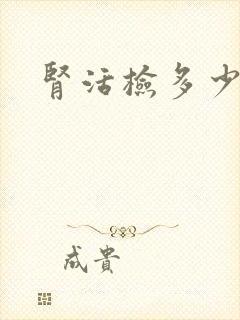 腎活檢多少
成貴